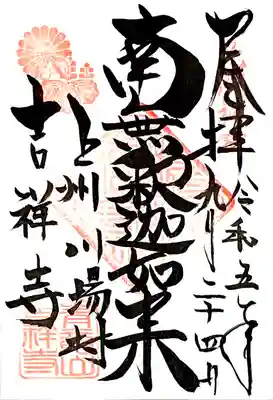 奉拝 令和五年
九月二十四日
南無釈迦如来
上州川場村
吉祥寺